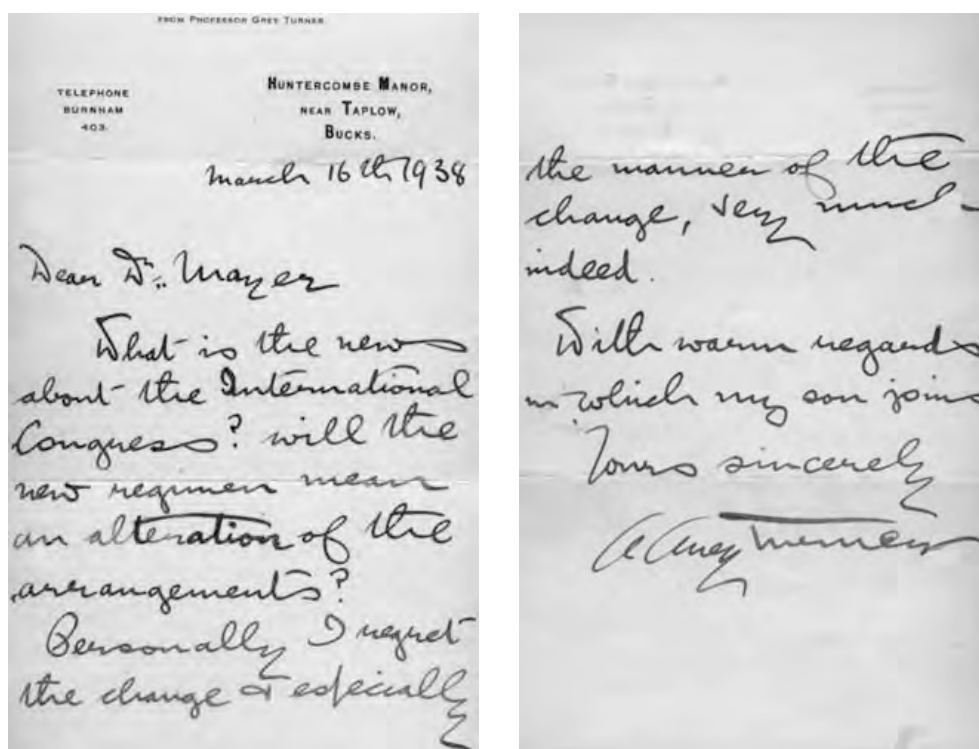 FROM PROFESSOR GREY TURNER
TELEPHONE
BURNHAM
403.
HUNTERCOMBE MANOR,
NEAR TAPLOW,
BUCKS.
March 16th 1938
Dear Dr. Mayer
What is the news
about the International
Congress? will the
new regimen mean
an alteration of the
arrangements?
Personally I regret
the change & especially
the manner of the
change, very much
indeed.
With warm regards
in which my son joins
Yours sincerely
G Grey Turner